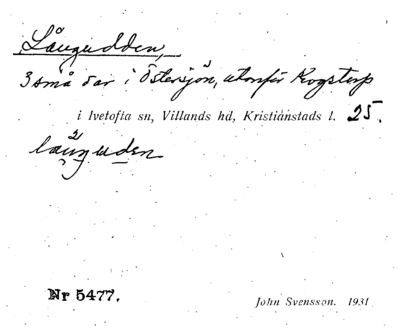 Långudden,
3 små öar i Östersjön, utanför Kogstorp
i Ivetofta sn, Villands hd, Kristianstads l. 25.
långuden
Nr 5477.
John Svensson. 1931